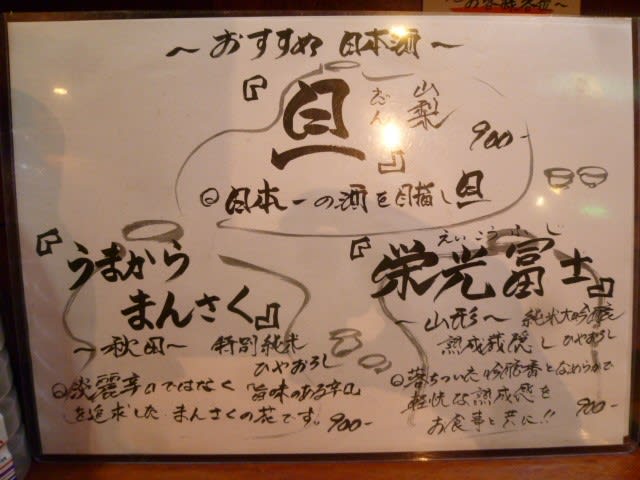 〜おすすめ 日本酒〜
『旦』
だん
山梨
900-
◎日本一の酒を目指し旦
『うまから
まんさく』
〜秋田〜 特別純米
ひやおろし
◎淡麗辛口ではなく 旨味のある辛口
を追求した まんさくの花です。 900-
えいこうふじ
『栄光冨士』
〜山形〜 純米大吟醸
熟成蔵隠し ひやおろし
◎落ちついた吟醸香となめらかで
軽快な熟成感を
お食事と共に!! 900-